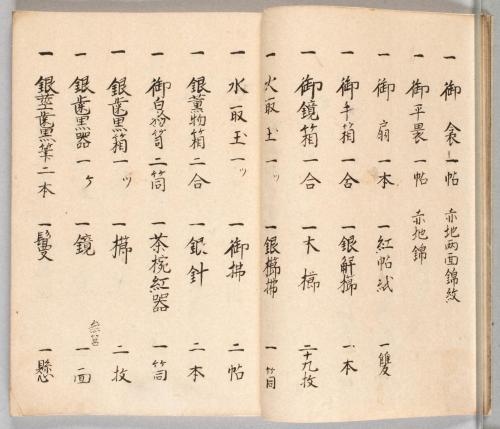 一 御衾 一帖 赤地両面錦紋
一 御平畳 一帖 赤地錦
一 御扇 一本 一 紅帖紙 一雙
一 御手箱 一合 一 銀解櫛 一本
一 御鏡箱 一合 一 木櫛 二十九枚
一 火取玉 一ッ 一 銀櫛拂 一筒
一 水取玉 一ッ 一 御拂 二帖
一 銀薫物箱 二合 一 銀針 二本
一 御白粉筥 二筒 一 茶椀紅器 一筒
一 銀歯黒箱 一ッ 一 櫛 二枚
一 銀歯黒器 一ケ 一 鏡 一面
一 銀歯黒筆 二本 一 鬘 一懸